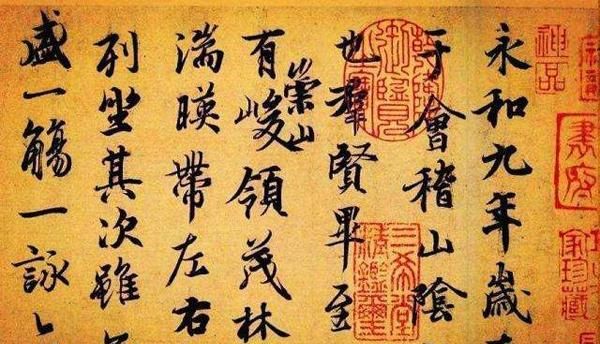 永和九年歲
于會稽山陰
也羣賢畢至
有崇山峻領茂林
湍暎帶左右
列坐其次雖
盛一觴一詠
神品
三希堂精鑑璽